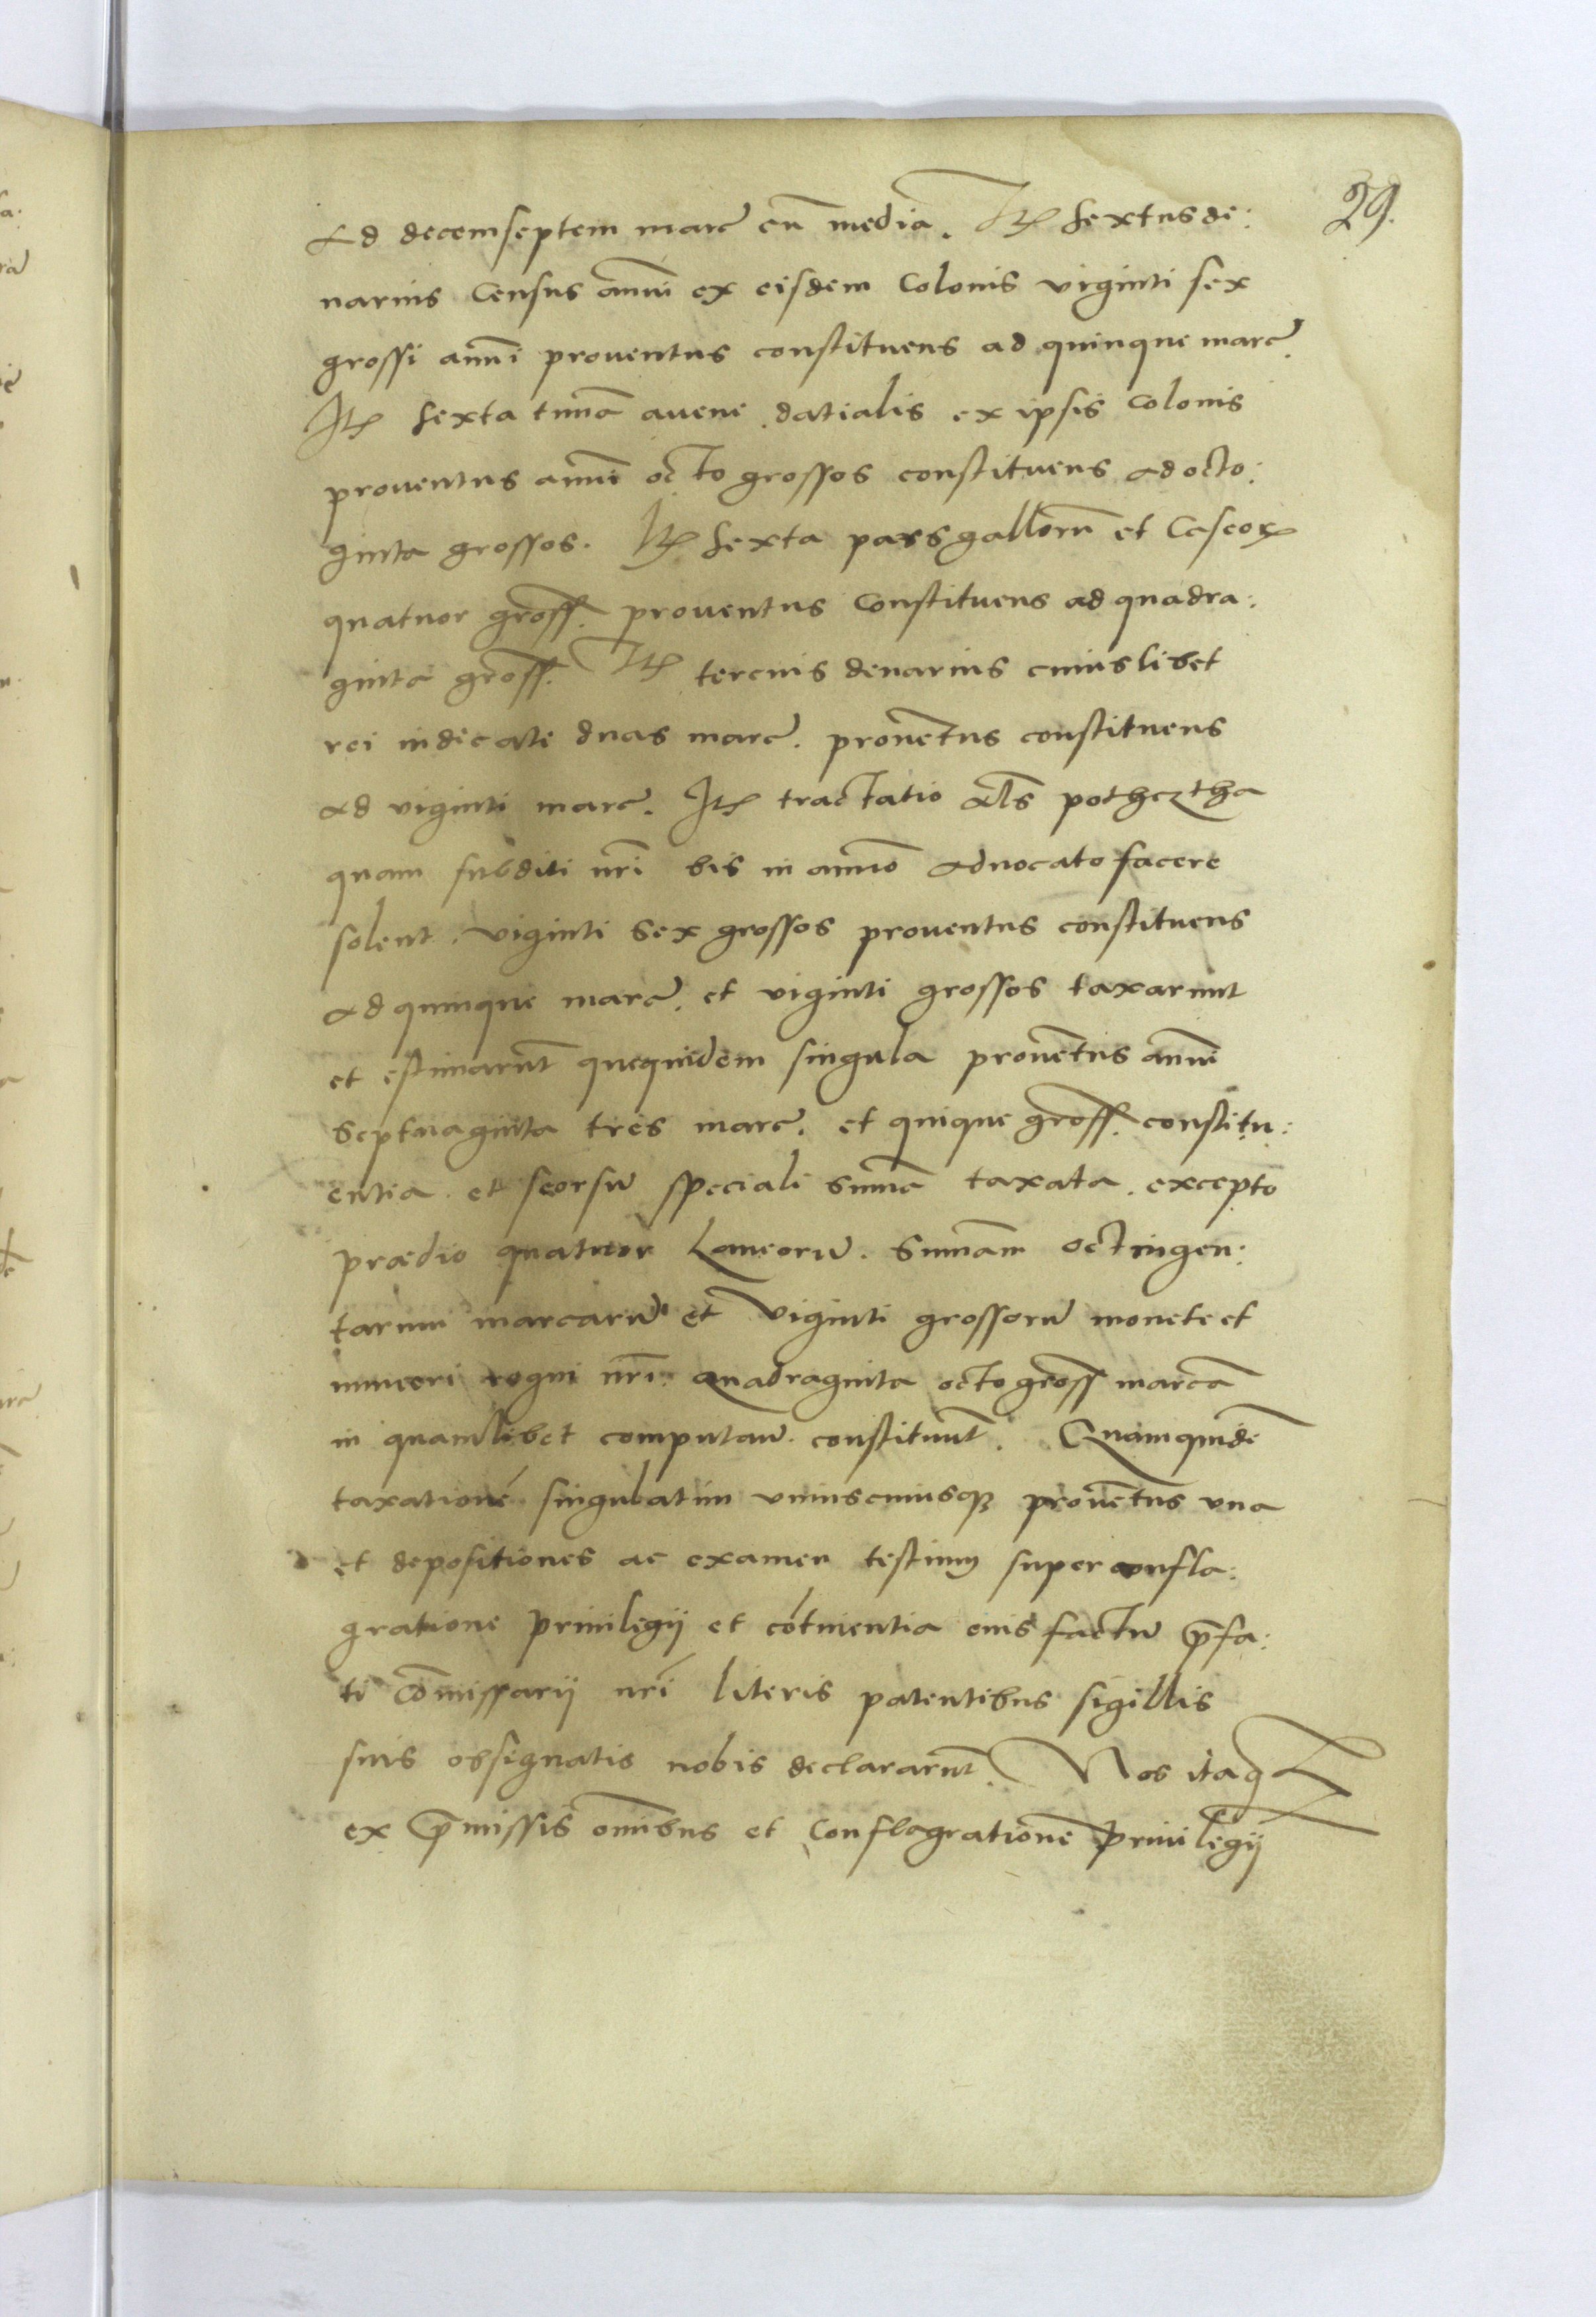 29.
Ad decemseptem marc̃ cũ media. Itẽ Sextus de:
narius Census annui ex eisdem Colonis viginti sex
grossi annui proventus constituens ad quinque marc̃.
Itẽ Sexta tunna avene datialis ex ipsis Colonis
proventus annui octo grossos constituens ad octo:
ginta grossos. Itẽ Sexta pars gallorũ et Caseoꝝ
quatuor gross̃. proventus Constituens ad quadra:
ginta gross̃. Itẽ tercius denarius cuiuslibet
rei iudicate duas marc̃. proventus constituens
ad viginti marc̃. Itẽ tractatio als̃ potheztha
quam subditi nr̃i bis in anno Advocato facere
solent. viginti Sex grossos proventus constituens
Ad quinque marc̃. et viginti grossos taxarunt
et estimarũt quequidem singula provẽtus annui
Septuaginta tres marc̃. et quique gross̃. constitu:
entia. et seorsũ speciali Summa taxata. excepto
prædio quatuor Laneorũ. Summam octingen:
tarum marcarũ et Viginti grossorũ monete et
numeri regni nr̃i: quadraginta octo gross̃ marcã
in quamlibet computan̄. constituũt. Quamquidẽ
taxationẽ singulatim uniuscuiusqꝫ provẽtus una
et depositiones ac examen testium super confla:
gratione Privilegij et cõtinentia eius factũ p̃fa:
ti Cõmissarij nr̃i literis patentibus sigillis
suis obsignatis nobis declararũt. Nos itaq̃
ex p̃missis omnibus et Conflagrationẽ Privilegij